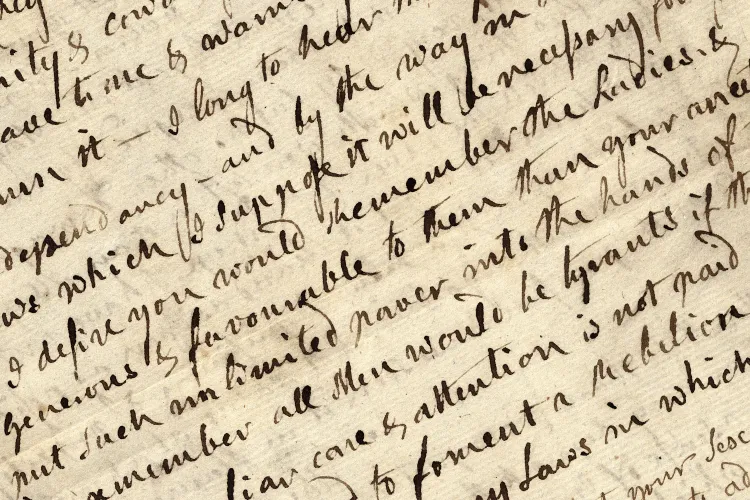 nity & cow
ave time & warm
run it — I long to hear
dependancy — and by the way in
ws which I suppose it will be necessary for
I desire you would Remember the Ladies, &
generous & favourable to them than your ancest
put such unlimited power into the hands of
remember all Men would be tyrants if th
liar care & attention is not paid
to foment a Rebelion
ny Laws in which
your Sex